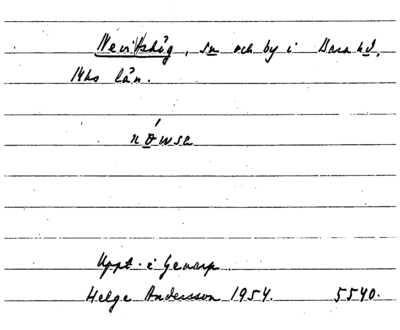 Nevitshög, sn och by i Bara hd,
Mhs län.
nøwsa
Uppt. i Genarp
Helge Andersson 1954. 5540.